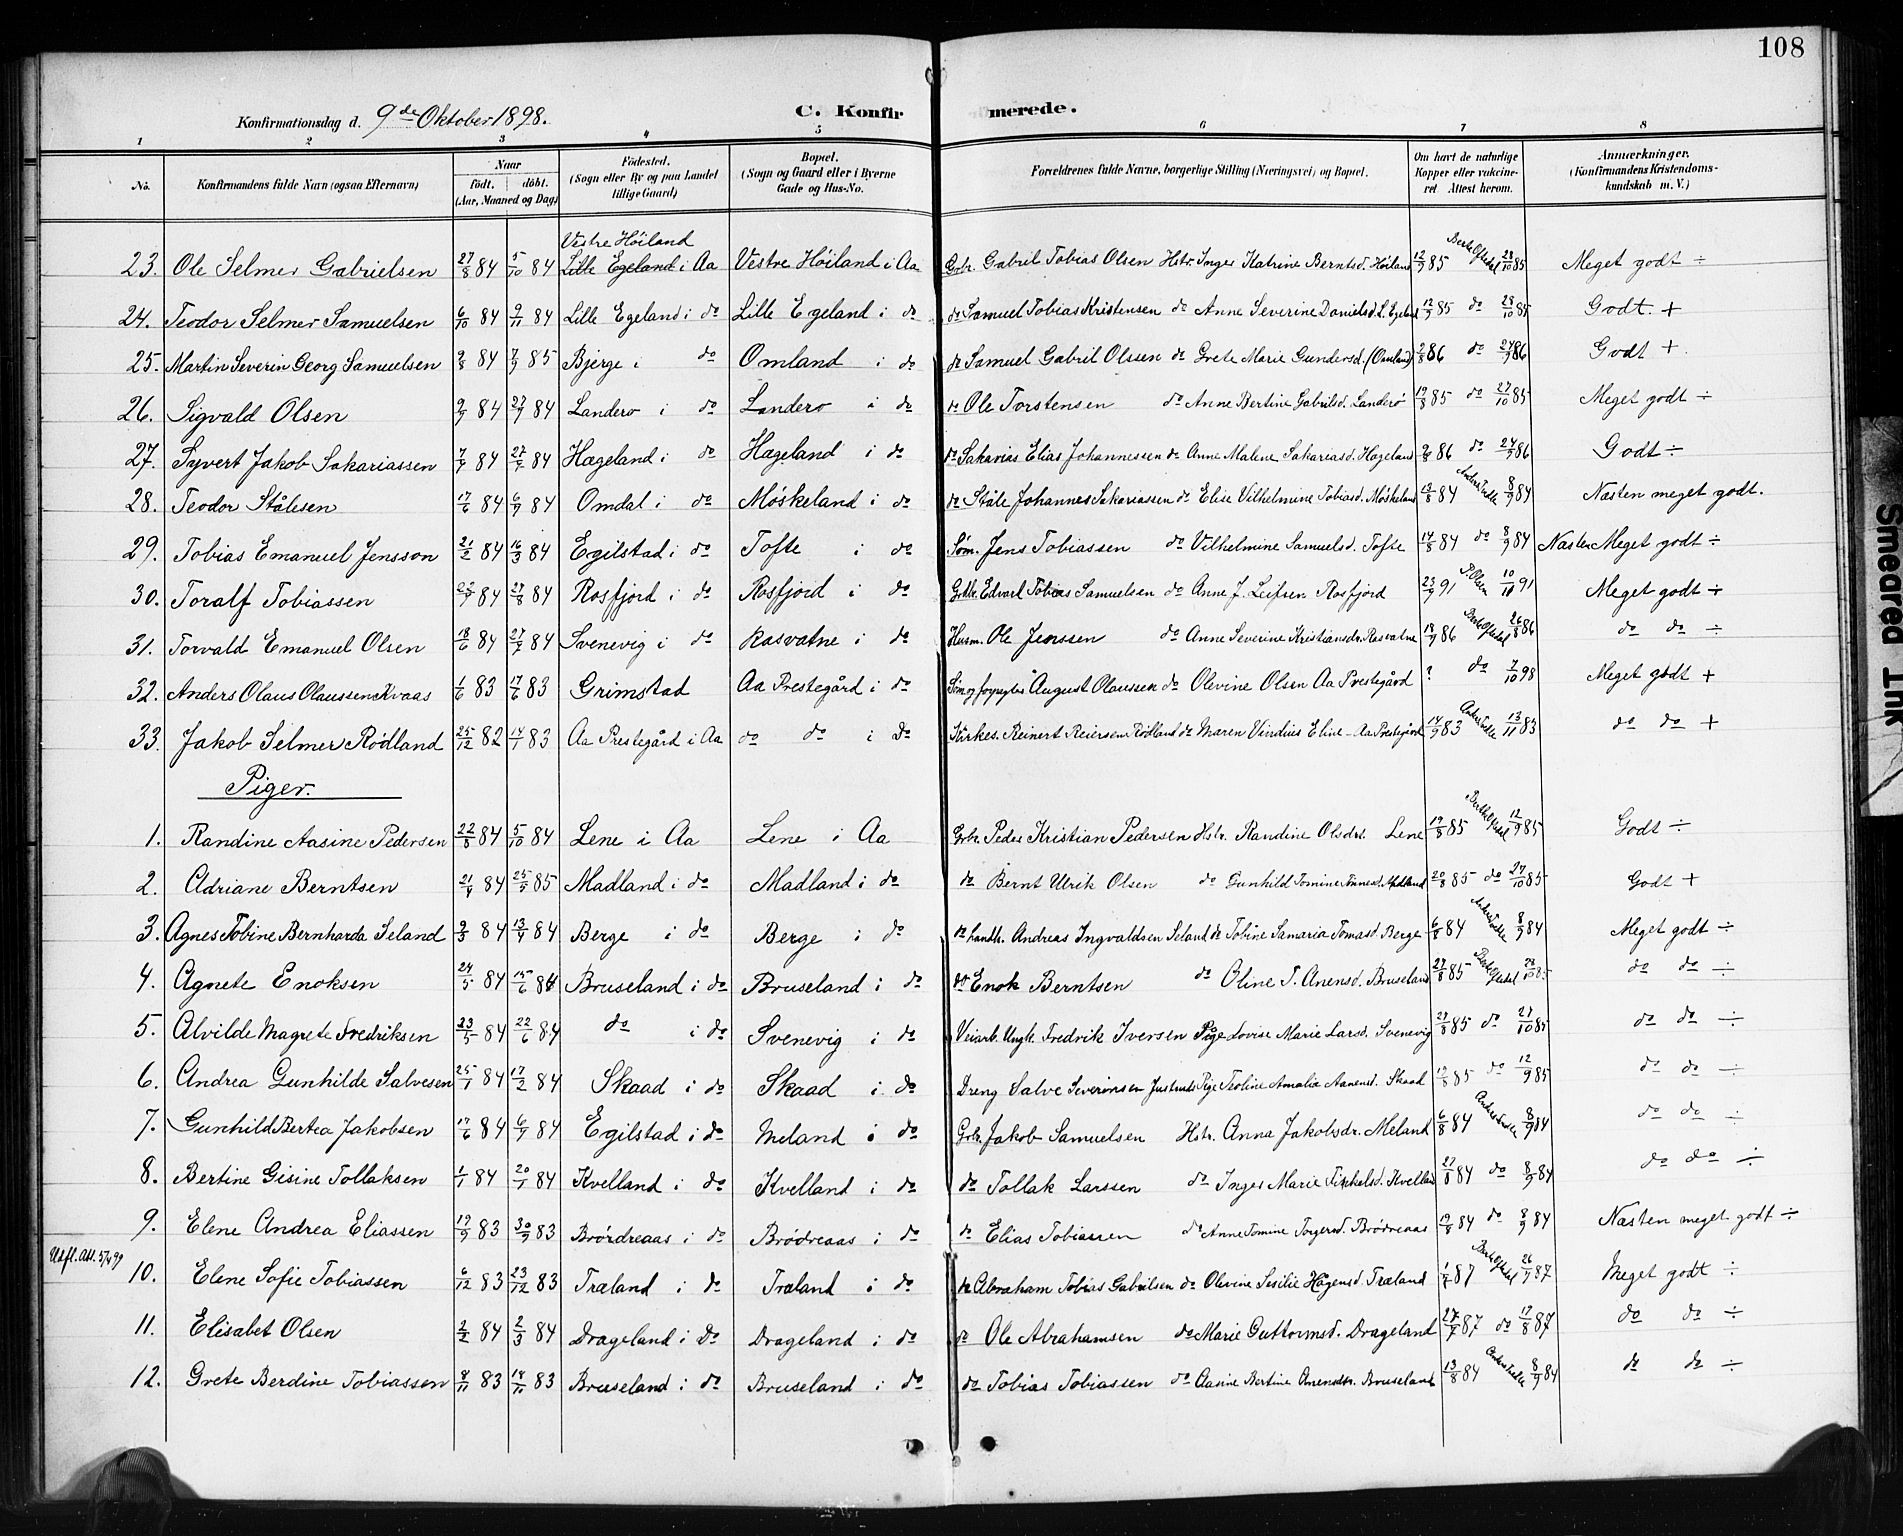 108
Konfirmationsdag d. 9de Oktober 1898. C. Konfirmerede.
1 2 3 4 5 6 7 8
No. Konfirmandens fulde Navn (ogsaa Efternavn) Naar födt. döbt. (Aar, Maaned og Dag) Födested. (Sogn eller By og paa Landet tillige Gaard) Bopæl. (Sogn og Gaard eller i Byerne Gade og Hus-No. Forældrenes fulde Navne, borgerlige Stilling (Næringsvei) og Bopæl. Om havt de naturlige Kopper eller vaccineret Attest herom. Anmærkninger. (Konfirmandens Kristendomskundskab m. V.)
Vestre Höiland
23. Ole Selmer Gabrielsen 27/8 84 5/10 84 Lille Egeland i Aa Vestre Höiland i Aa Gbr. Gabril Tobias Olsen Hstr. Inges Katrine Berntsd. Höiland 12/9 85 28/10 85 Meget godt ÷
24. Teodor Selmer Samuelsen 6/10 84 9/11 84 Lille Egeland i do Lille Egeland i do do Samuel Tobias Kristensen do Anne Severine Danielsd. L. Egeland 12/9 85 do 28/10 85 Godt. +
25. Martin Severin Georg Samuelsen 9/8 84 7/9 85 Bjerge i do Omland i do do Samuel Gabril Olssen do Grete Marie Gundersd. (Omland) 2/8 86 do 24/9 86 Godt +
26. Sigvald Olsen 9/7 84 27/7 84 Landerö i do Landerö i do do Ole Torstensen do Anne Bertine Gabrilsd. Landerö 19/8 85 do 27/10 85 Meget godt ÷
27. Syvert Jakob Sakariassen 7/7 84 27/7 84 Hægeland i do Hægeland i do do Sakarias Elias Johannessen do Anne Malene Sakariasd. Hægeland 2/8 86 do 24/9 86 Godt ÷
28. Teodor Stålesen 17/6 84 6/7 84 Omdal i do Möskeland i do do Ståle Johannes Sakariassen do Elise Vilhelmine Tobiasd. Möskeland 13/8 84 8/9 84 Næsten meget godt.
29. Tobias Emanuel Jensson 21/2 84 16/3 84 Egilstad i do Tofte i do Söm. Jens Tobiassen do Vilhelmine Samuelsd. Tofte 14/8 84 do 8/9 84 Næsten Meget godt ÷
30. Toralf Tobiassen 84 27/8 84 Rosfjord i do Rosfjord i do Edvard Tobias Samuelsen do Anne J. Leifsen Rosfjord 23/9 91 P. Olsen 10/10 91 Meget godt ÷
31. Torvald Emanuel Olsen 18/6 84 27/7 84 Svenevig i do Rasvatne i do Husm. Ole Jenssen do Anne Severine Kristiansdr. Rasvatne 18/9 86 26/8 86 do do ÷
32. Anders Olaus Olaussen Kvaas 1/6 83 17/6 83 Grimstad Aa Prestegård i do August Olaussen do Olevine Olsen Aa Prestegård ? do 7/10 98 Meget godt +
33. Jakob Selmer Rödland 25/12 82 14/1 83 Aa Prestegård i Aa do do i do Kirkes. Reinert Reiersen Rödland do Maren Vindius Eline Aa Prestegård 14/9 83 13/11 83 do do +
Piger.
1. Randine Aasine Pedersen 22/8 84 5/10 84 Lene i Aa Lene i Aa Gbr. Peder Kristian Pedersen Hstr. Randine Olsdr. Lene 19/8 85 12/9 85 Godt ÷
2. Adriane Berntsen 21/9 84 25/5 85 Madland i do Madland i do do Bernt Ulrik Olsen do Gunhild Tomine Madland 20/8 85 do 27/10 85 Godt +
3. Agnes Tobine Bernharda Seland 9/3 84 13/4 84 Berge i do Berge i do do Landh. Andreas Ingvaldsen Seland do Tobine Samaria Tomasd. Berge 6/8 84 8/9 84 Meget godt ÷
4. Agnete Enoksen 24/5 84 15/6 84 Bruseland i do Bruseland i do do Enok Berntsen do Oline T. Anensd. Bruseland 27/8 85 85 do do ÷
5. Alvilde Magrete Fredriksen 23/5 84 22/6 84 do i do Svenevig i do Veiarb. Ungk. Fredrik Iversen Pige Lovise Marie Larsd. Svenevig 27/8 85 do 27/10 85 do do ÷
6. Andrea Gunhilde Salvesen 25/1 84 17/2 84 Skaad i do Skaad i do Dreng Salve Severinsen Pige Teoline Amalia Aanensd. Skaad 19/8 85 do 12/9 85 do do ÷
7. Gunhild Bertea Jakobsen 17/6 84 6/7 84 Egilstad i do Meland i do Gbr. Jakob Samuelsen Hstr. Anna Jakobsdr. Meland 6/8 84 8/9 84 do do ÷
8. Bertine Gisine Tollaksen 1/1 84 20/1 84 Kvelland i do Kvelland i do do Tollak Larssen do Inges Marie Kvelland 27/8 84 do 8/9 84 do do ÷
9. Elene Andrea Eliassen 19/9 83 30/9 83 Brördreaas i do Brödreaas i do do Elias Tobiassen do Anne Tomine Torgersd. Brödreaas 19/8 84 do 8/9 84 Næsten meget godt ÷
Udfl. att. 5/4 99
10. Elene Sofie Tobiassen 6/12 83 23/12 83 Træland i do Træland i do do Abraham Tobias Gabrilsen do Olevine Sesilie Hågensd. Træland 1/7 87 26/7 87 Meget godt ÷
11. Elisabet Olsen 2/2 84 2/3 84 Drageland i do Drageland i do do Ole Abrahamsen do Marie Guttormsd. Drageland 27/7 87 do 17/8 87 do do ÷
12. Grete Berdine Tobiassen 8/11 83 18/11 83 Bruseland i do Bruseland i do do Tobias Tobiassen do Aasine Bertine Anensdr. Bruseland 13/8 84 8/9 84 do do ÷
Smeared Ink